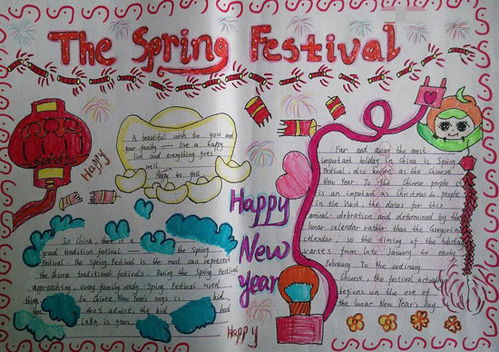 The Spring Festival
A beautiful wish to you and
your family — live a happy
life and everything goes
well.
Happy to you
Happy
Far and away the most
important holiday in China is Spring
Festival also known as the Chinese
New Year To the Chinese people it
is as important as Christmas to people
in the West. The dates for this
annual celebration are determined by the
lunar calendar rather than the Gregorian
calendar, so the timing of the holiday
varies from late January to early
February To the ordinary
Chinese, the festival actually
begins on the eve of
the lunar New Year's Day
Happy
New
year
In China, there is a
grand tradition festival the Spring
Festival. The Spring Festival is the most can represent
the Chinese traditional festivals. During the Spring Festival
approaching every family ready Spring Festival used
things In Chinese New Year's is kid
you admit, the kid had
LaBa is year
Happy